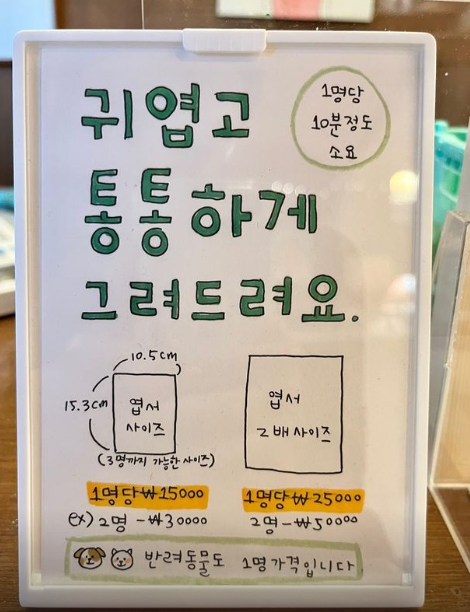 귀엽고
1명당
10분정도
소요
통통하게
그려드려요.
10.5cm
15.3cm
엽서
사이즈
(3명까지 가능한 사이즈)
엽서
2배 사이즈
1명당 ₩15000
1명당 ₩25000
ex) 2명 - ₩30000
2명 - ₩50000
반려동물도 1명가격입니다